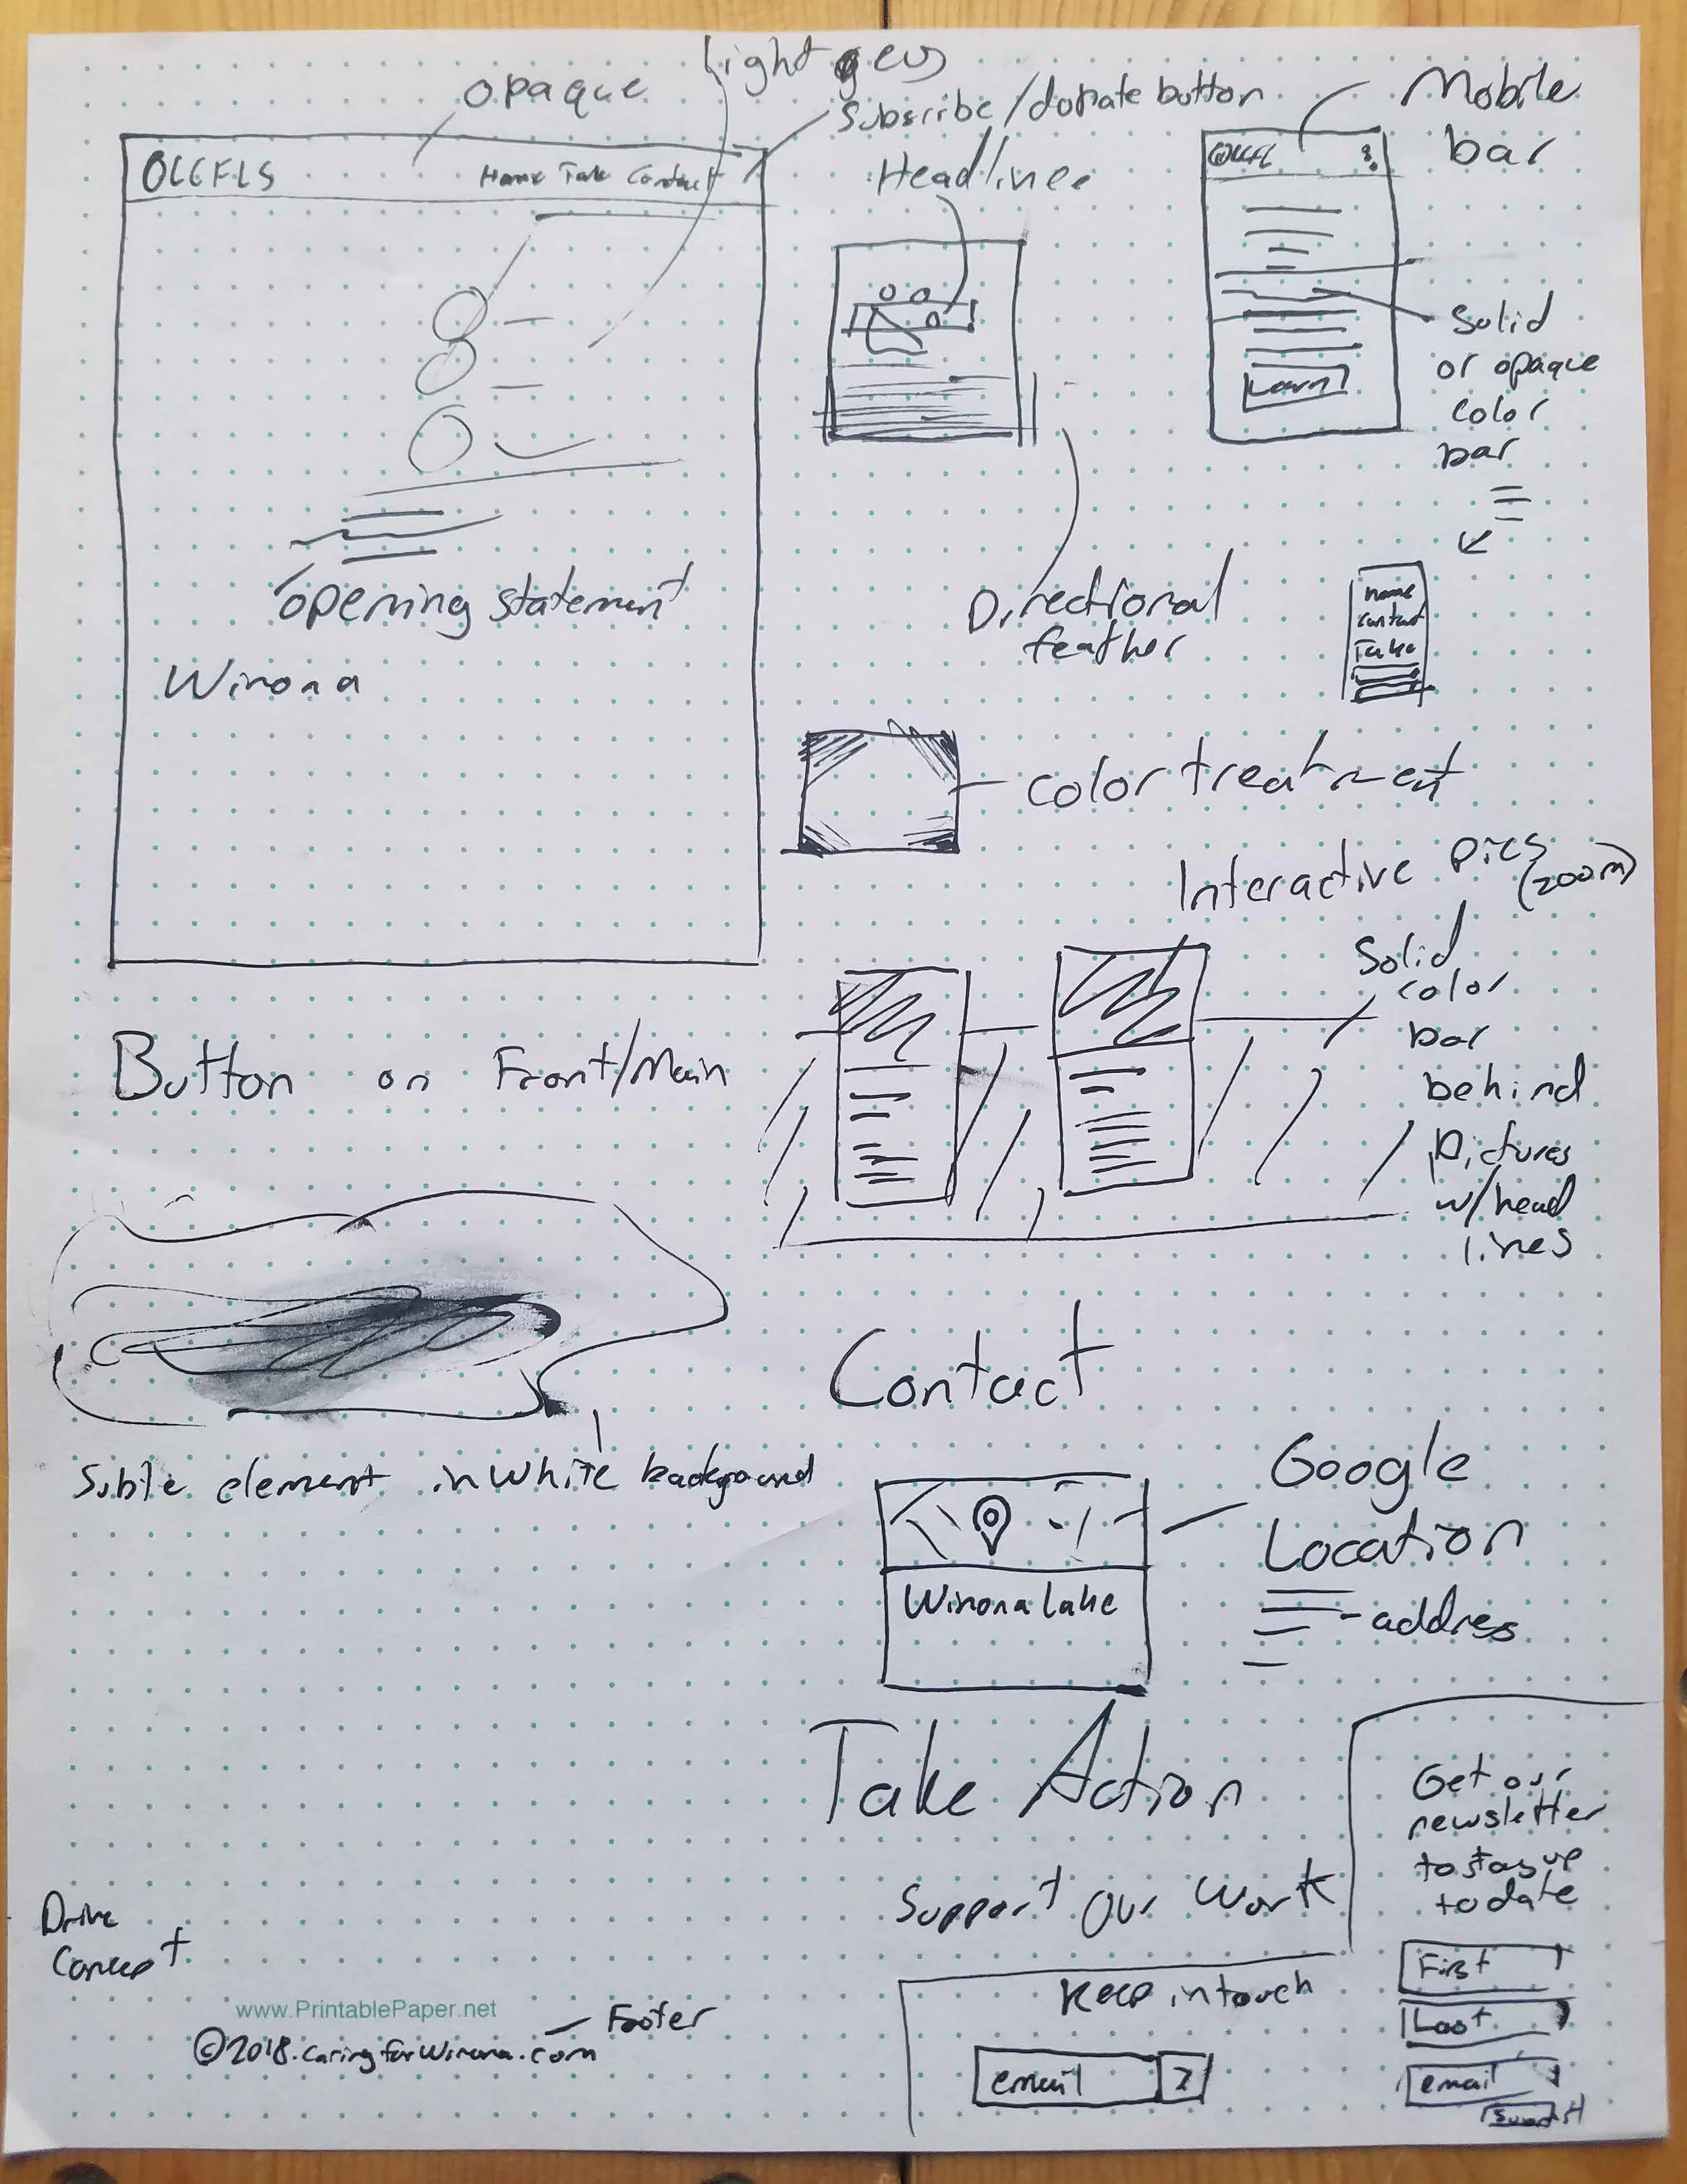 opaque
Subscribe/donate button
Headlines
Home Take Contact
Mobile
bar
Solid
or opaque
color
bar
opening statement
Winona
Directional
feather
home
contact
Take
color treatment
Interactive pics
(zoom)
Solid
color
bar
behind
Pictures
w/head
lines
Button on Front/Main
Subtle element in white background
Contact
Google
Location
address
Winona Lake
Take Action
Support Our Work
Get our
newsletter
to stay up
to date
First
Last
email
Keep in touch
email
Drive
Concept
www.PrintablePaper.net
©2018.caringforWinona.com
Footer